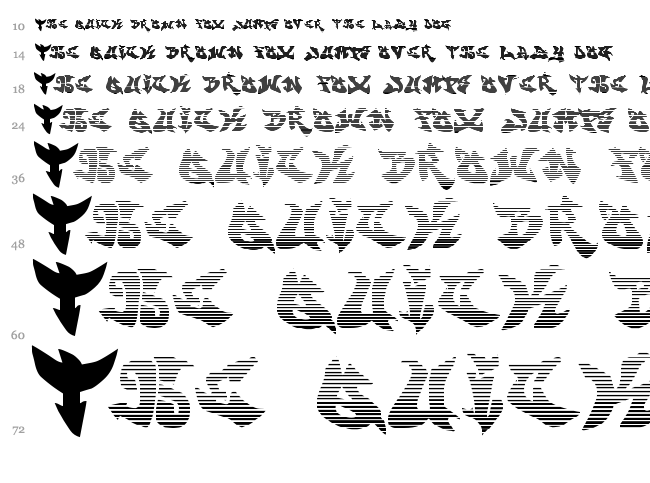 10 THE QUICK BROWN FOX JUMPS OVER THE LAZY DOG
14 THE QUICK BROWN FOX JUMPS OVER THE LAZY DOG
18 THE QUICK BROWN FOX JUMPS OVER THE
24 THE QUICK BROWN FOX JUMPS
36 THE QUICK BROWN
48 THE QUICK
60 THE QUICK
72 THE